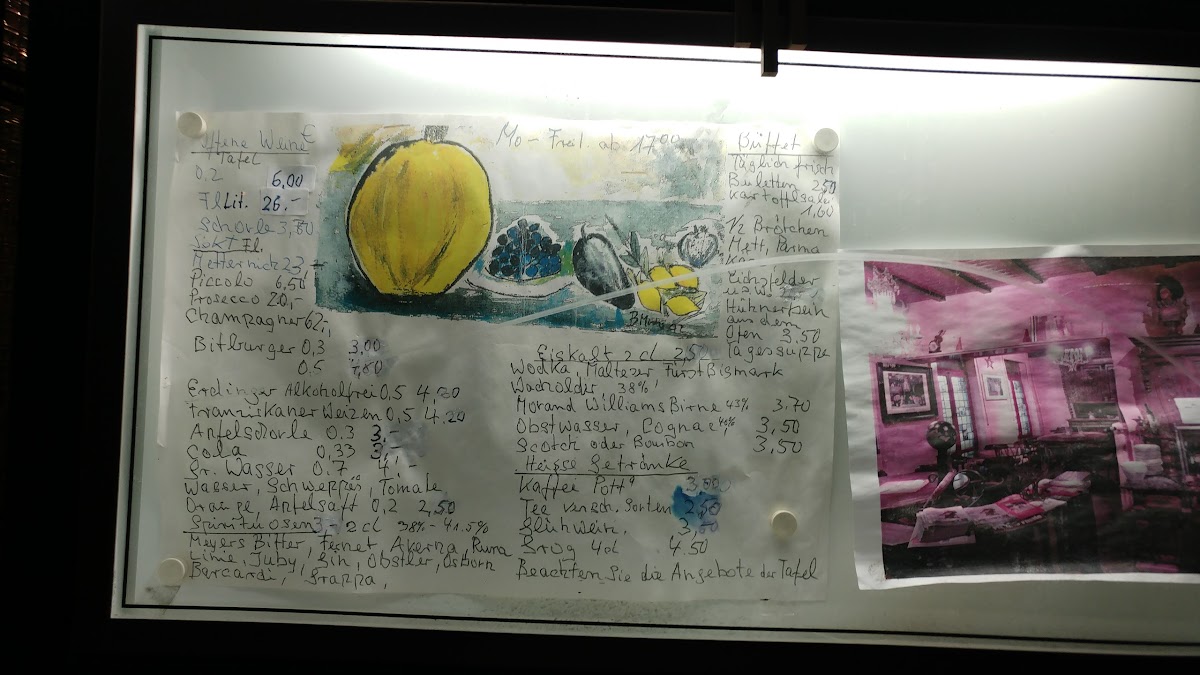 Offene Weine €
Tafel
0,2 6,00
Fl Lit. 26,-
Schorle 3,80
Sekt Fl.
Metternich 23,-
Piccolo 6,50
Prosecco 20,-
Champagner 62,-
Bitburger 0,3 3,00
0,5
Erdinger Alkoholfrei 0,5 4,50
Franziskaner Weizen 0,5 4.20
Apfelschorle 0.3 3,-
Cola 0,33 3,-
Gr. Wasser 0.7 4,-
Wasser, Schweppes, Tomate
Orange, Apfelsaft 0,2 2,50
Spirituosen 3,- 2 cl 38%-41.5%
Meyers Bitter, Fernet Averna, Rum
Linie, Juby, Gin, Obstler, Osborn
Barcardi, Grappa,
Mo - Frei. ab 17 00
Eiskalt 2 cl 2,50
Wodka, Malteser Fürst Bismark
Wacholder 38%!
Morand Williams Birne 43% 3.70
Obstwasser, Cognac 40% 3,50
Scotch oder Bourbon 3,50
Heisse Getränke
Kaffee Pott 3,00
Tee versch. Sorten 2,50
Glühwein.
Grog 4cl 4.50
Beachten Sie die Angebote der Tafel
Büffet
Täglich frisch
Buletten 2,50
Kartoffelsala
1,60
1/2 Brötchen
Mett, Parma
Eichsfelder
u.s.w.
Hühnerbein
aus dem
Ofen 3.50
Tagessuppe